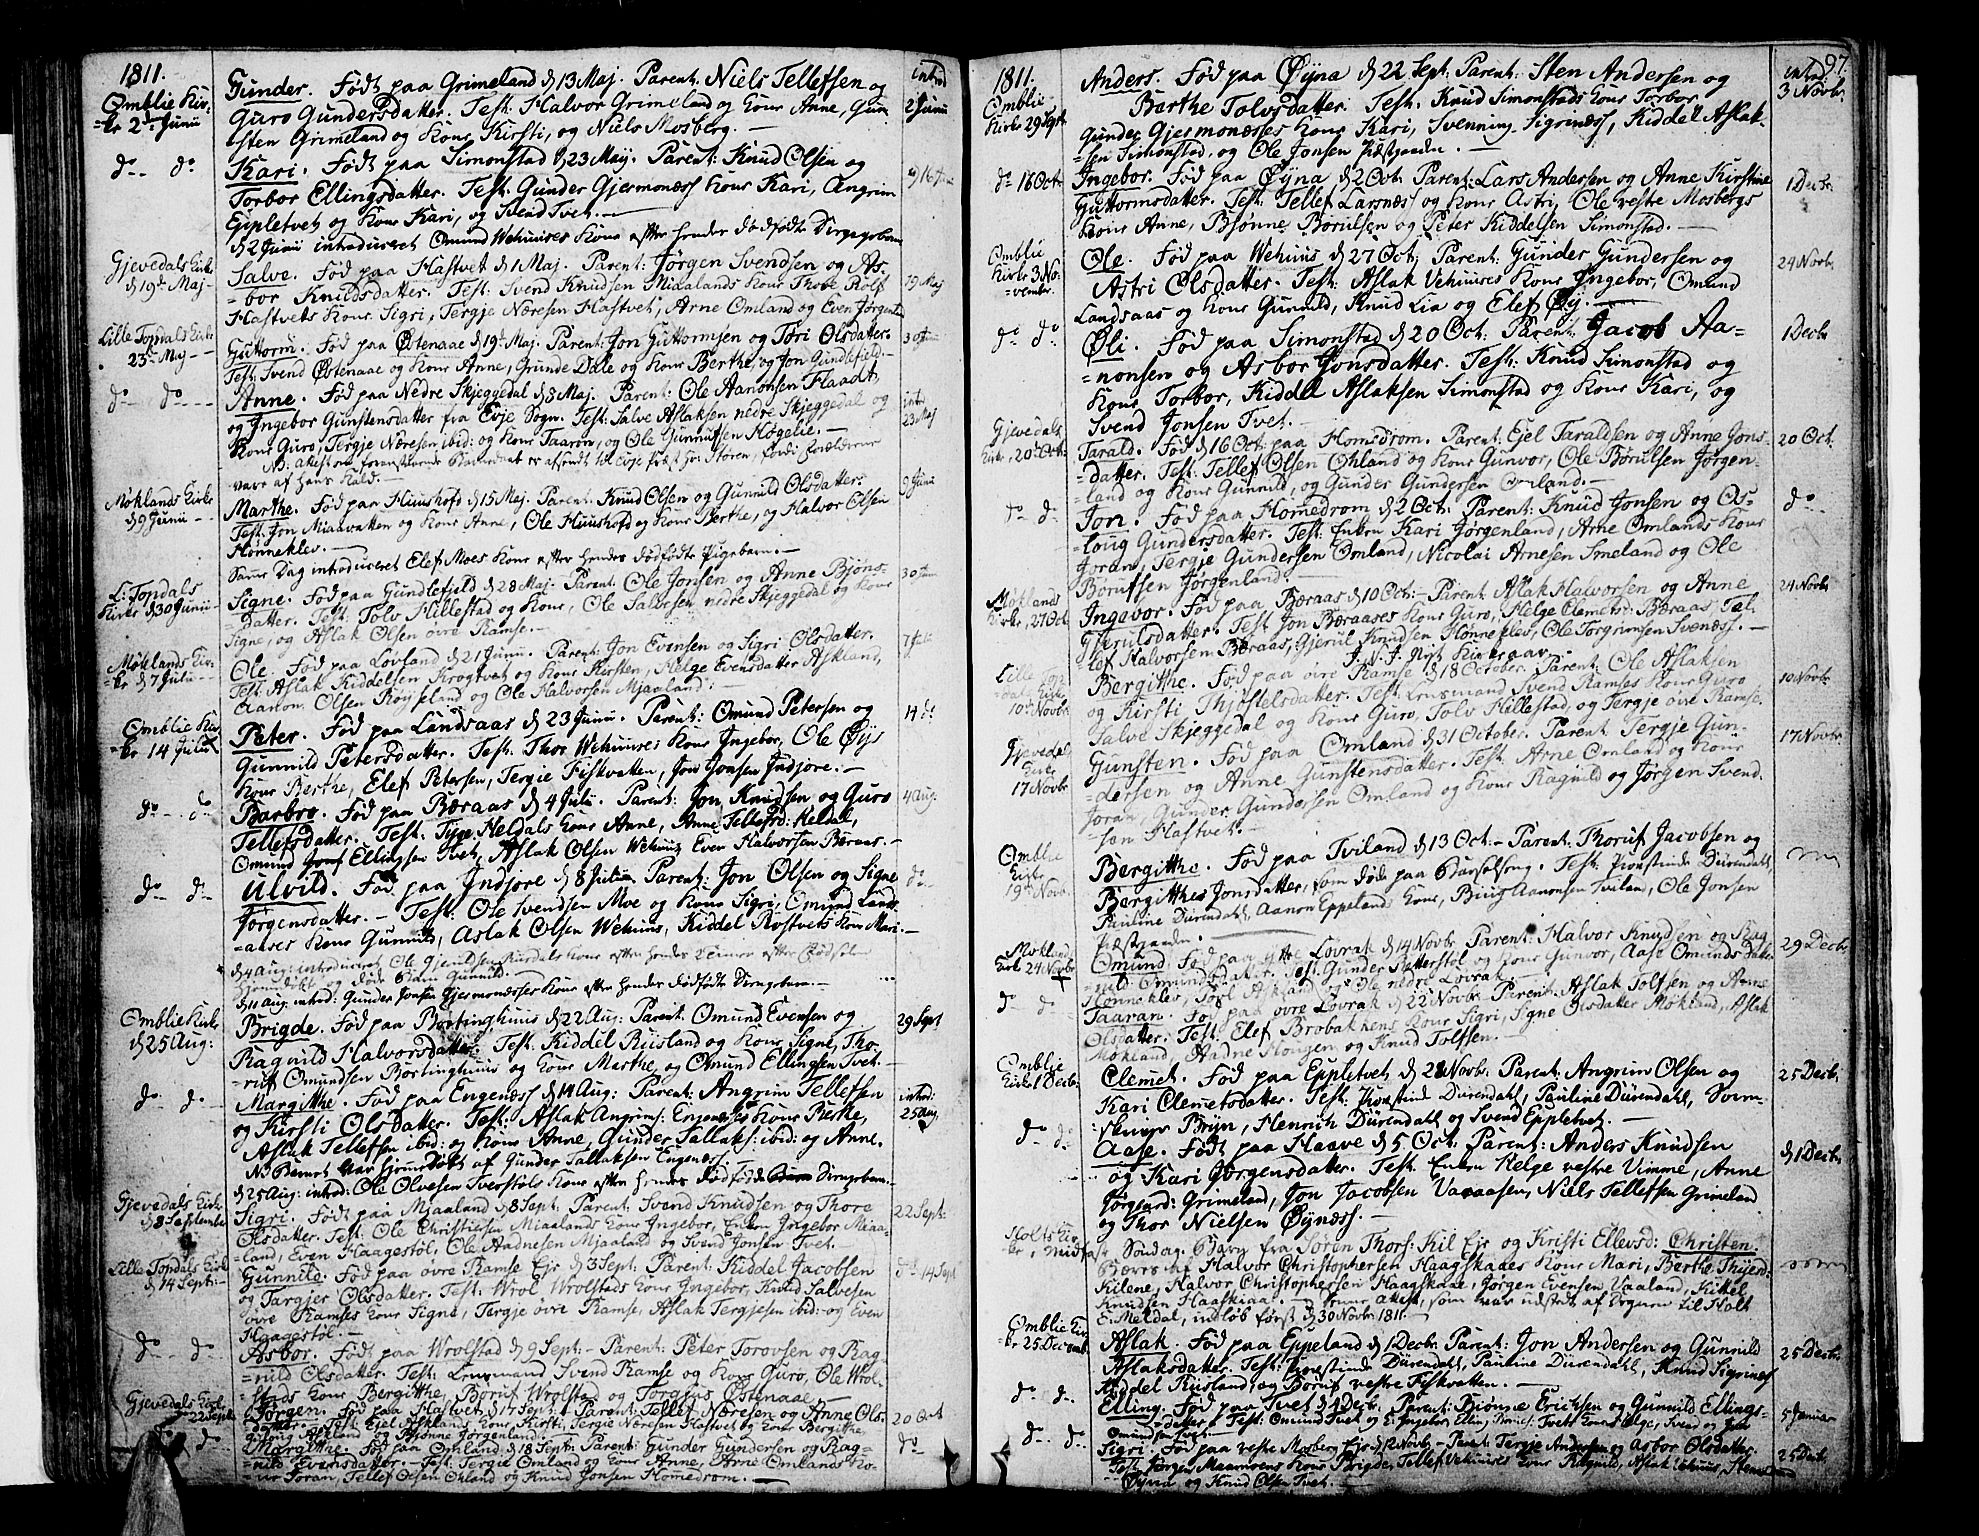 1811.
Omblie Kir-
=ke 2den Junii
Gunder. Født paa Grimeland d 13 Maj. Parent: Niels Tellefsen og
Guro Gundersdatter. Test: Halvor Grimeland og Kone Anne, Gun
sten Grimeland og Kone Kirsti, og Niels Mosberg. —
introd
2 Junii
do — do
Kari. Født paa Simonstad d 23 Maij. Parent: Knud Olsen og
Torbor Ellingsdatter. Test: Gunder Gjermonæss Kone Kari, Angrim
Eppletvet og Kone Kari, og Svend Tvet. —
d 2 Junii introduceret Omund Wehuuses Kone efter hendes dødfødte
Gjevedals Kirke
d 19de Maj
Salve. Fød paa Hastvet d 1 Maj. Parent: Jørgen Svendsen og As-
=bor Knudsdatter. Test: Svend Knudsen Miaalands Kone Thore Rolf
Hastvets Kone Sigri, Tergje Næresen Hastvet, Arne Omland og Even Jørgenland
19 Maj
Lille Topdals Kirke
23de Maj —
Guttorm. Fød paa Østenaae d 19de Maj. Parent: Jon Guttormsen og Tori Olsdatter.
Test: Svend Østenaae og Kone Anne, Grunde Dale og Kone Berthe, og Jon Gundlefield. —
do — do —
Anne. Fød paa Nedre Skjeggedal d 8 Maj. Parent: Ole Aanonsen Flaadt,
og Ingebor Gunstensdatter fra Evje Sogn. Test: Salve Aslaksen nedre Skjeggedal og
Kone Guro, Tergje Næresen ibid: og Kone Taaron, og Ole Gunnufsen Høgelie. —
introd
23 Maj
være af hans Kald. —
Møklands Kirke
d 9 Junii —
Marthe. Fød paa Huushofd d 15 Maj. Parent: Knud Olsen og Gunnild Olsdatter.
Test: Jon Miaavatten og Kone Anne, Ole Huushofd og Kone Berthe, og Halvor Olsen
Hønneklev. —
9 Junii
Samme Dag introduceret Elef Moes Kone efter hendes dødfødte Pigebarn. —
L: Topdals
Kirke d 30 Junii —
Signe. Fød paa Gundlefjeld d 28 Maj — Parent: Ole Jonsen og Anne Bjøns-
=datter. Test: Tolv Hillestad og Kone, Ole Salvesen nedre Skjeggedal og Kone
Signe, og Aslak Olsen øvre Ramse. —
30 Junii
Møklands Kir-
=ke d 7 Julii —
Ole. Fød paa Lovland d 21 Junii. Parent: Jon Evensen og Sigri Olsdatter.
Test: Aslak Kiddelsen Krogtvet og Kone Kirsten, Helge Evensdatter Askland,
Aanon Olsen Røysland og Ole Halvorsen Mjaaland: —
7 Julii
Omblie Kir-
=ke 14 Julii
Peter. Fød paa Landsaas d 23 Junii. Parent: Omund Petersen og
Gunnild Petersdatter. Test: Thor Wehuuses Kone Ingebor, Ole Øijs
Kone Berthe, Elef Petersen, Tergie Fiskvatten, Jon Jonsen Indjore: —
14 do
do — do
Barbro. Fød paa Bæraas d 4 Julii. Parent: Jon Knudsen og Guro
Tellefsdatter. Test: Tyge Heldals Kone Anne, Anne Tellefsd: Heldal,
Omund Ellingsen Tvet, Aslak Olsen Wehuus Even Halvorsen Bæraas. —
4 Aug:
do — do
Ulvild. Fød paa Indjore d 8 Julii Parent: Jon Olsen og Signe
Jørgensdatter. — Test: Ole Svendsen Moe og Kone Sigri, Omund Lands
=aases Kone Gunnild, Aslak Olsen Wehuus, Kiddel Rostvets Kone Mari. —
do —
d 11 Aug: introd: Gunder Jonsen Gjermonæsses Kone efter hendes dødfødte Drengebarn. —
Omblie Kirke
d 25 Aug:
Brigde. Fød paa Børtinghuus d 22 Aug: Parent: Omund Evensen og
Ragnild Halvorsdatter. Test: Kiddel Riisland og Kone Signe, Tho-
=ruf Omundsen Børtinghuus og Kone Marthe, og Omund Ellingsen Tvet. —
29 Sept
do — do —
Margitthe. Fød paa Engenæss d 14 Aug: Parent: Angrim Tellefsen
og Kirsti Olsdatter. Test: Aslak Angrims: Engenæsses Kone Berthe,
Aslak Tellefsen ibid: og Kone Anne, Gunder Tallaks: ibid: og Anne.
NB Barnet var hjemmedøbt af Gunder Tallaksen Engenæss. —
introd:
25 Aug
d 25 Aug: introd: Ole Olvesen Tverstøls Kone efter hendes dødfødde Drengebarn. —
Gjevedals Kirke
d 8 September
Sigri. Født paa Mjaaland d 8 Sept: Parent: Svend Knudsen og Thore
Olsdatter. Test: Ole Christiesen Miaalands Kone Ingebor, Enken Ingebor Miaa-
land, Even Haagestøl, Ole Aadnesen Mjaaland og Svend Jonsen Tvet. —
22 Sept:
Lille Topdals Kirke
d 14 Sept: —
Gunnild. Fød paa øvre Ramse Eje d 3 Sept: Parent: Kiddel Jacobsen
og Targjer Olsdatter. Test: Wrol Wrolstads Kone Ingebor, Knud Salvesen
øvre Ramses Kone Signe, Tergie øvre Ramse, Aslak Tergjesen ibid: og Even
Haagestøl. —
do 14 Sept
do — do —
Asbor. Født paa Wrolstad d 9 Sept: — Parent: Peter Torovsen og Rag-
=nild Olsdatter. Test: Lensmand Svend Ramse og Kone Guro, Ole Wrol-
=stads Kone Bergitthe, Boruf Wrolstad og Torgjus Østenaae. —
Gjevedals Kirke
22 Septbr
Jørgen. Fød paa Hastvet d 17 Sept: Parent: Tellef Næresen og Anne Ols-
datter. — Test: Ejel Asklands Kone Kirsti, Tergie Næresen Hastvet og Kone Bergitthe,
Askland og Bjønne Jørgenland. —
20 Oct
do — do
Margitthe. Fød paa Omland d 18 Sept: Parent: Gunder Gundersen og Rag=
=nild Evensdatter. — Test: Tergie Omland og Kone Anne, Arne Omlands Ko-
=ne Joran, Tellef Olsen Ohland og Knud Jonsen Homedrom. —
do —
97.
1811.
Omblie
Kirke 29 Sept.
Anders. Fød paa Øyna d 22 Sept: Parent: Sten Andersen og
Barthe Tolvsdatter. Test: Knud Simonstads Kone Torbor
Gunder Gjermonæsses Kone Kari, Svenning Sigrinæss, Kiddel Aslak-
=sen Simonstad, og Ole Jonsen Præstgaarden. —
introd:
3 Novbr.
do 16 Oct:
Ingebor. Fød paa Øyna d 2 Octr Parent: Lars Andersen og Anne Kirstine
Guttormsdatter. Test: Tellef Larsnæs og Kone Astri, Ole vestre Mosbergs
Kone Anne, Bjønne Borulsen og Peter Kiddelsen Simonstad. —
1 Decbr
Omblie
Kirke 3 No-
=vembr.
Ole. Fød paa Wehuus d 27 Oct; Parent: Gunder Gundersen og
Astri Olsdatter. Test: Aslak Vehuuses Kone Ingebor, Omund
Landsaas og Kone Gunnild, Knud Lia og Elef Øij. —
24 Novbr.
do do
Øli. Fød paa Simonstad d 20 Oct. Parent: Jacob Aa-
=nonsen og Asbor Jonsdatter. Test: Knud Simonstad og
Kone Torbor, Kiddel Aslaksen Simonstad og Kone Kari, og
Svend Jonsen Tvet. —
1 Decbr
Gjevedals
Kirke, 20de Oct:
Tarald. Fød d 16 Oct: paa Homsdrom. Parent: Ejel Taraldsen og Anne Jons-
=datter. Test: Tellef Olsen Ohland og Kone Gunvor, Ole Børulsen Jørgen-
=land og Kone Gunnild, og Gunder Gundersen Omland. —
20 Oct:
do do
Jon. Fød paa Homedrom d 2 Oct: Parent: Knud Jonsen og Os-
=loug Gundersdatter. Test: Enken Kari Jørgenland, Arne Omlands Kone
Joran, Tergje Gundersen Omland, Nicolai Arnesen Smeland og Ole
Borufsen Jørgenland. —
do —
Møklands
Kirke, 27 Oct:
Ingebor. Fød paa Bæraas d 10 Oct: — Parent: Aslak Halvorsen og Anne
Gjerulsdatter. Test: Jon Bæraases Kone Guro, Helge Clemets: Bæraas Tel-
lef Halvorsen Bæraas, Gjerul Knudsen Hønneklev, Ole Torgrimsen Svenæss. —
24 Novbr
Lille Top
dals Kirke
10de Novbr
Bergitthe. Fød paa øvre Ramse d 18 October. Parent: Ole Aslaksen
og Kirsti Thjøstelsdatter. Test: Lensmand Svend Ramses Kone Guro
Salve Skjeggedal og Kone Guro, Tolv Hillestad, og Tergje øvre Ramse.
10 Novbr
Gjevedal
Kirke
17 Novbr
Gunsten. Fød paa Omland d 31 October. Parent: Tergje Gun-
=dersen og Anne Gunstensdatter. Test: Arne Omland og Kone
Joran, Gunder Gundersen Omland og Kone Ragnild og Jørgen Svend.
sen Hastvet. —
17 Novbr
Omblie
Kirke
19de Novbr.
Bergitthe. Fød paa Tviland d 13 Oct: — Parent: Thoruf Jacobsen og
Bergitthes Jonsdatter, som døde paa Barselseng. Test: Præstinde Dürendahl,
Pauline Dürendahl, Aanon Eppelands Kone, Birug Aanonsen Tvilan, Ole Jonsen
Præstgaarden. —
Mokland
Kirke 24 Novbr
Omund. Fød paa yttre Lovrak d 14 Novbr. Parent: Halvor Knudsen og Rag
=nild Omundsdatter. Test: Gunder Retterstøl og Kone Gunvor, Aase Omunds Datter
Hønneklev, Torl Askland og Ole nedre Lovrak. —
29 Decbr
do — do
Taaran. Fød paa øvre Lovrak d 22 Novbr. Parent: Aslak Tolfsen og Anne
Olsdatter. Test: Elef Brobakkens Kone Sigri, Signe Olsdatter Mokland, Aslak
Mokland, Aadne Hougen og Knud Tolfsen. —
Omblie
Kirke 1 Decbr:
Clemet. Fød paa Eppletvet d 28 Novbr. Parent: Angrim Olsen og
Kari Clemetsdatter. Test: Præstinde Dürendahl, Pauline Dürendahl,
Bryn, Henrich Dürendahl og Svend Eppletvet. —
25 Decbr.
do do
Aase. Født paa Haave d 5 Oct: Parent: Anders Knudsen
og Kari Jørgensdatter. Test: Enken Helge vestre Vimme, Anne
Jørgensd: Grimeland, Jon Jacobsen Vavaasen, Niels Tellefsen Grimeland
og Thor Nielsen Øynæss. —
d 1 Decbr.
Holts Kir-
ke, midfast
Søndag. Barn fra Søren Thors: Kil Eje og Kristi Ellevsd: Christen.
Bæres af Halvor Christophersen Haagskaaes Kone Mari, Berthe
Kilene, Halvor Christophersen Haagskaae, Jørgen Evensen Vaaland, Kittel
Knudsen Haaskiaae. — Denne attest, som var udstedt af til Holt
E: Meldal, indløb først d 30 Novbr 1811. —
Omblie Kir-
ke 25 Decemb
Aslak. Fød paa Eppeland d 1 Decbr. Parent: Jon Andersen og Gunnild
Aslaksdatter. Test: Præstinde Dürendahl, Pauline Dürendahl, Knud Sigrinæs
Kiddel Riisland, og Boruf vestre Fiskvatten. —
25 Decbr.
do do.
Elling. Fød paa Tvet d 1 Decbr. Parent: Bjønne Erichsen og Gunnild Ellings-
=datter. — Test: Omund Tvet og
Omundsen Tvet. —
5 Januar
do — do
Sigri. Fød paa vestre Mosberg Eje d 12 Novbr. — Parent: Tergje Andersen og Asbor Olsdatter.
Test: Jørgen Maamoens Kone Brigde, Tellef Vehuuses Kone Ragnild, Aslak Vehuus, Sten
Øyna, og Knud Olsen Tvet. —
25 Decbr.